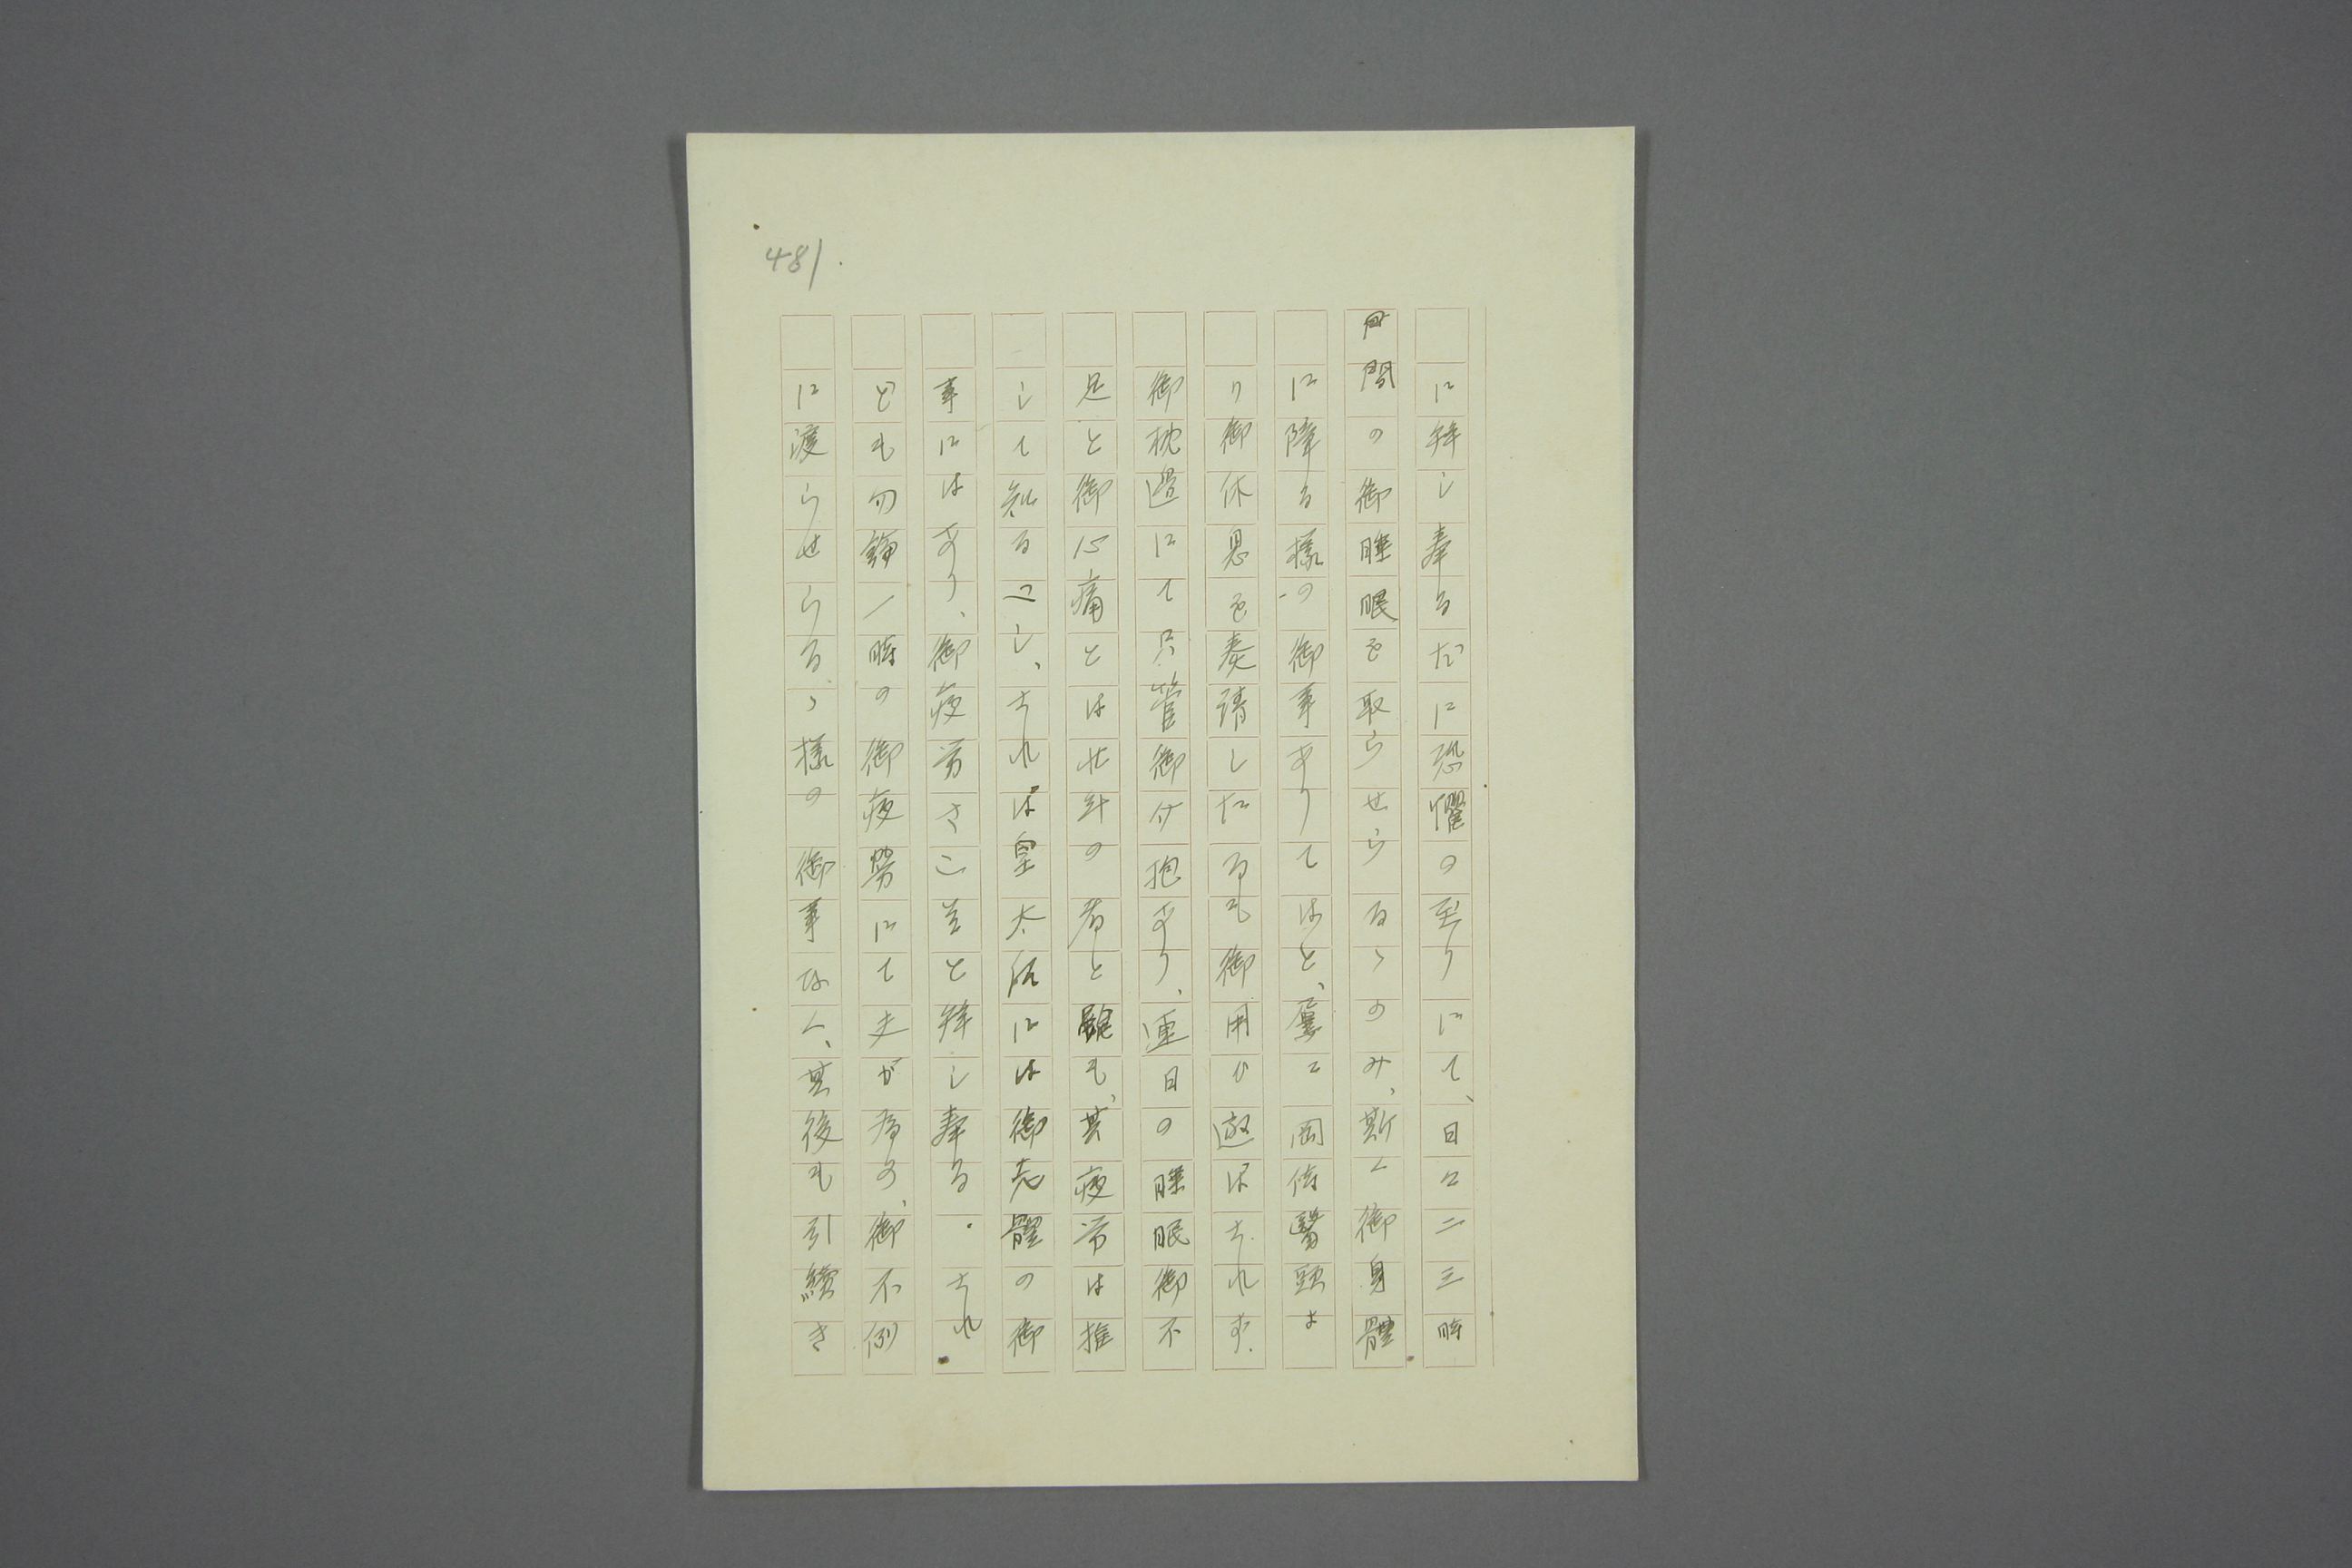 481.
に拜し奉るだに恐懼の至りにて、日々二三時
間の御睡眠を取らせらるゝのみ、斯く御身體
に障る樣の御事ありてはと、屢々岡侍醫頭よ
り御休息を奏請したるも御用ひ遊ばされず.
御枕邊にて只管御介抱あり、連日の睡眠御不
足と御心痛とは壮年の者と雖も、其疲労は推
して知るべし、されば皇太后には御老體の御
事にはあり、御疲労さこそと拜し奉る.され
ども勿論一時の御疲勞にて夫が為の、御不例
に渡らせらるゝ樣の御事なく、其後も引續き